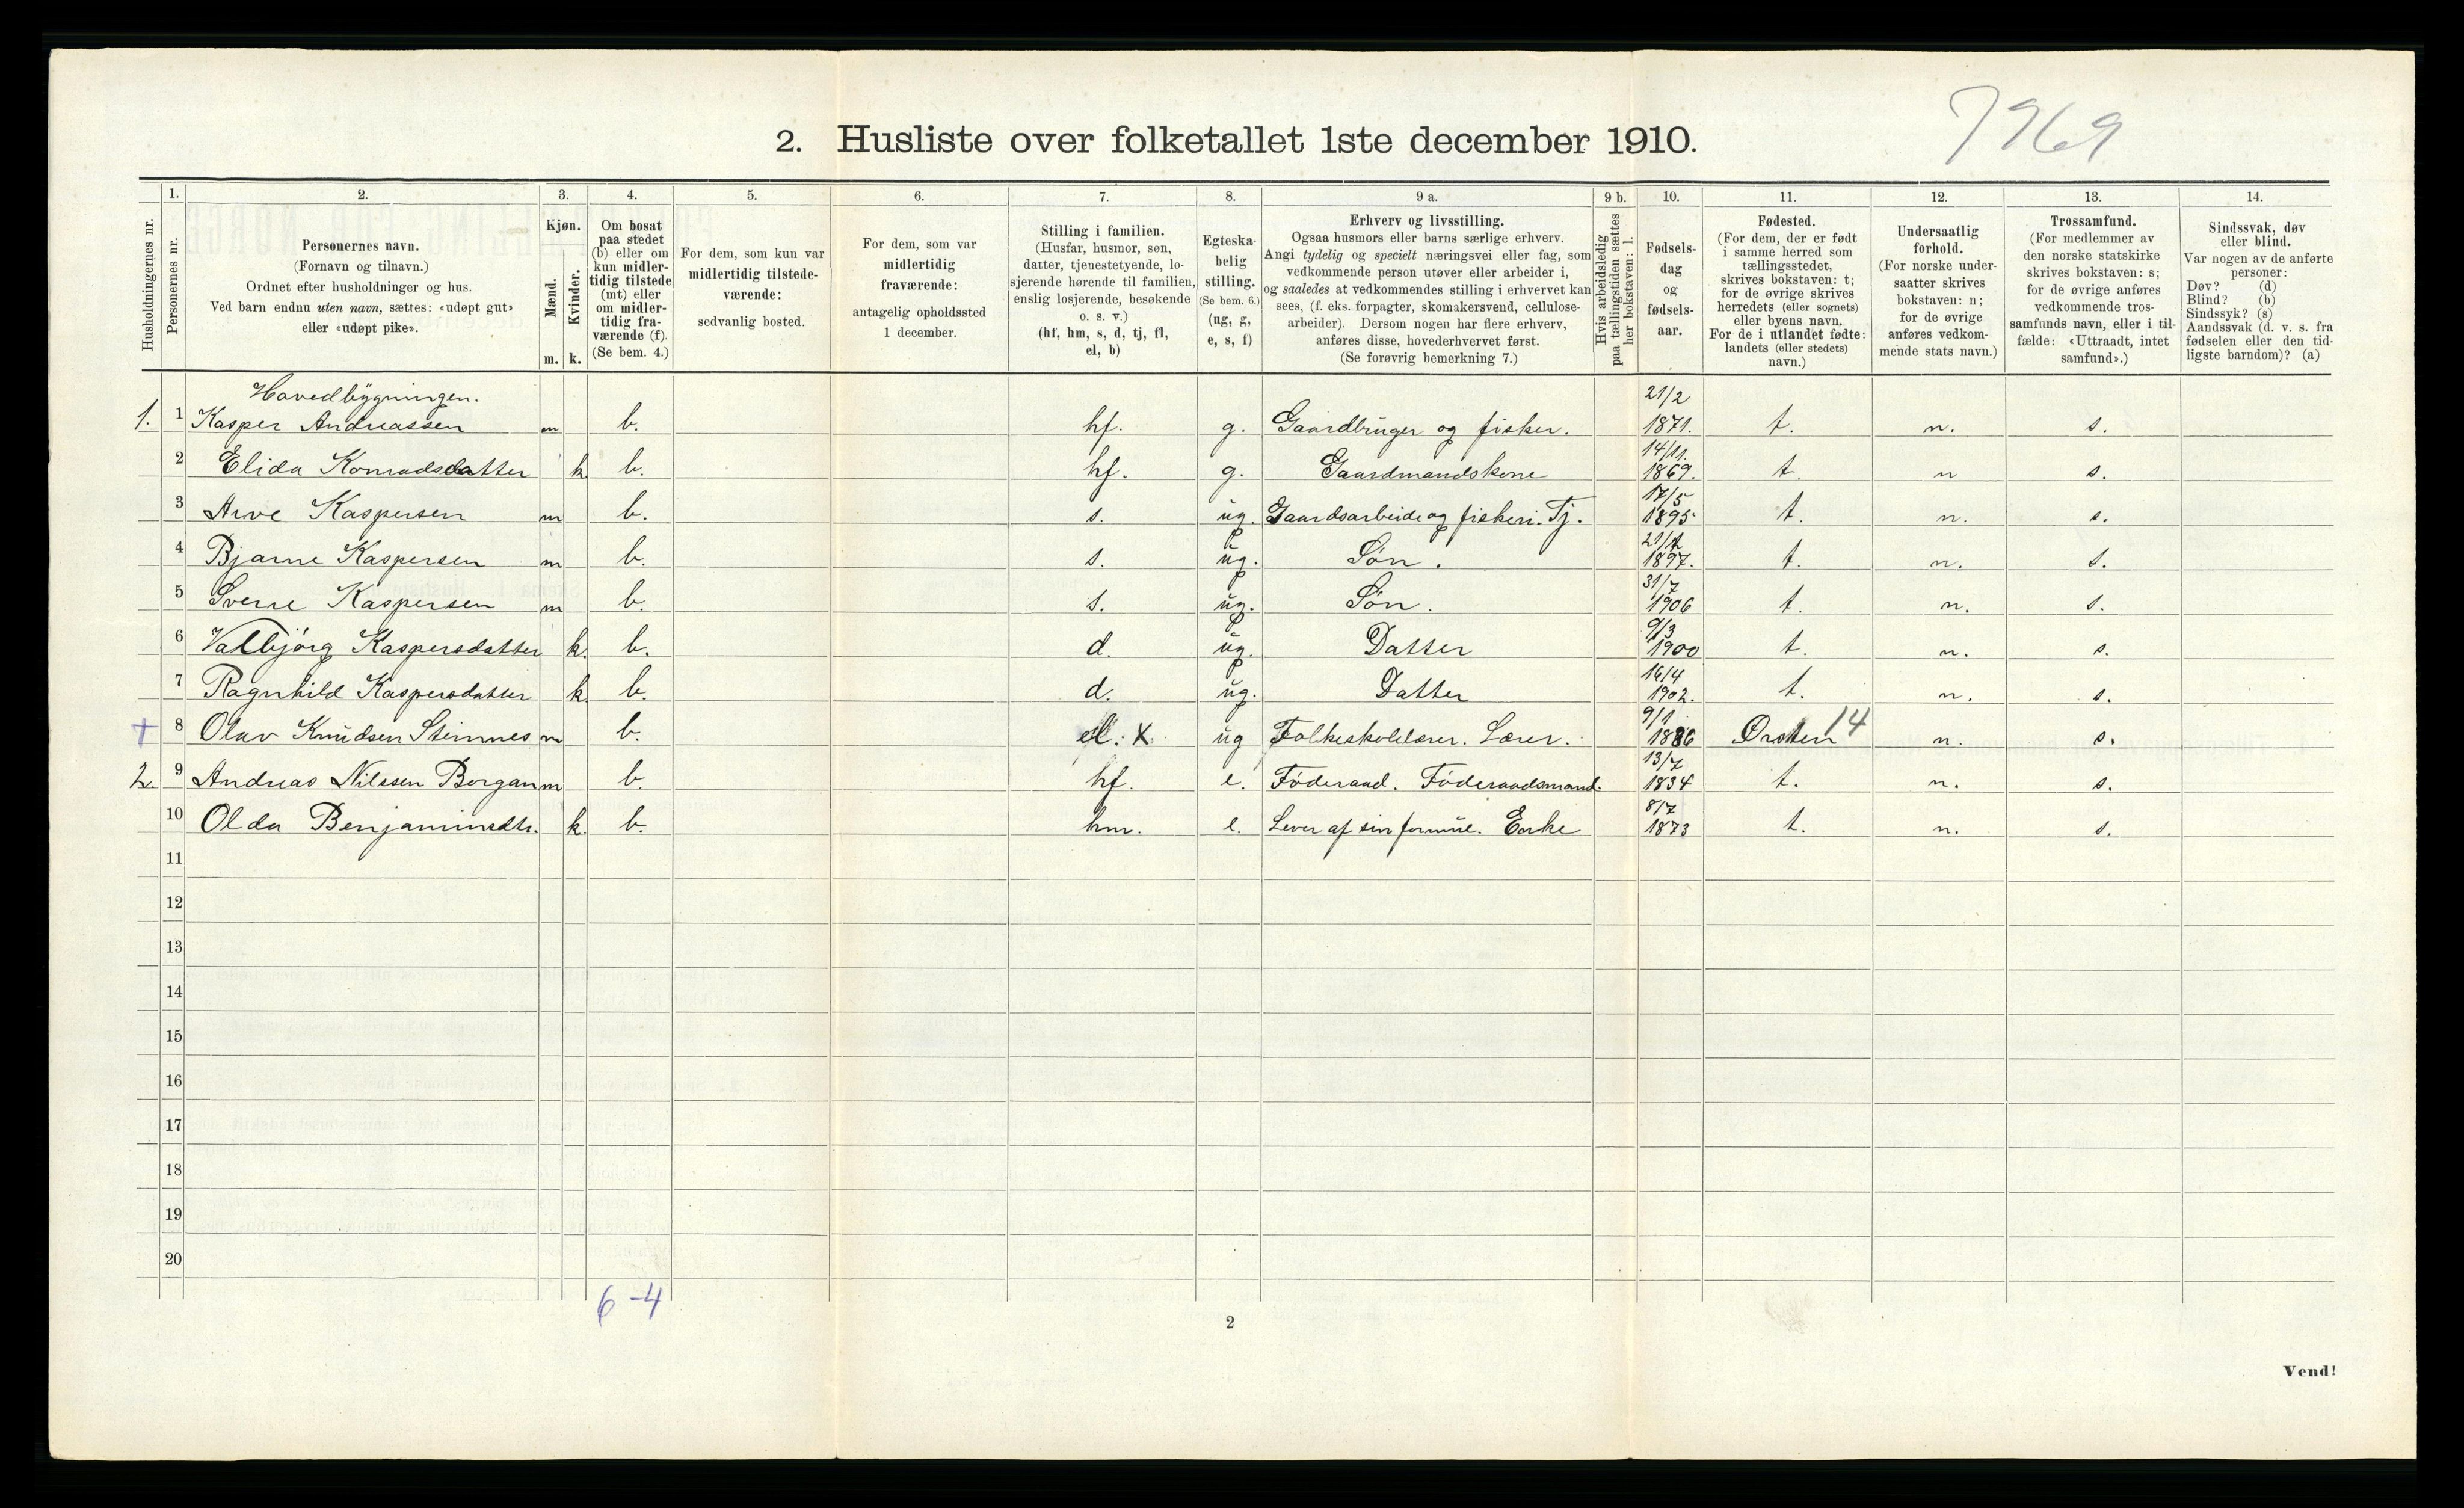 7969
2. Husliste over folketallet 1ste december 1910.
Husholdningernes nr.
1. Personernes nr.
2. Personernes navn.
(Fornavn og tilnavn.)
Ordnet efter husholdninger og hus.
Ved barn endnu uten navn, sættes: «udøpt gut»
eller «udøpt pike».
3. Kjøn.
Mænd. Kvinder.
m. k.
4. Om bosat
paa stedet
(b) eller om
kun midler-
tidig tilstede
(mt) eller
om midler-
tidig fra-
værende (f).
(Se bem. 4.)
5. For dem, som kun var
midlertidig tilstede-
værende:
sedvanlig bosted.
6. For dem, som var
midlertidig
fraværende:
antagelig opholdssted
1 december.
7. Stilling i familien.
(Husfar, husmor, søn,
datter, tjenestetyende, lo-
sjerende hørende til familien,
enslig losjerende, besøkende
o. s. v.)
(hf, hm, s, d, tj, fl,
el, b)
8. Egteska-
belig
stilling.
(Se bem. 6.)
(ug, g,
e, s, f)
9 a. Erhverv og livsstilling.
Ogsaa husmors eller barns særlige erhverv.
Angi tydelig og specielt næringsvei eller fag, som
vedkommende person utøver eller arbeider i,
og saaledes at vedkommendes stilling i erhvervet kan
sees, (f. eks. forpagter, skomakersvend, cellulose-
arbeider). Dersom nogen har flere erhverv,
anføres disse, hovederhvervet først.
(Se forøvrig bemerkning 7.)
9 b. Hvis arbeidsledig
paa tællingstiden sættes
her bokstaven: l.
10. Fødsels-
dag
og
fødsels-
aar.
11. Fødested.
(For dem, der er født
i samme herred som
tællingsstedet,
skrives bokstaven: t;
for de øvrige skrives
herredets (eller sognets)
eller byens navn.
For de i utlandet fødte:
landets (eller stedets)
navn.)
12. Undersaatlig
forhold.
(For norske under-
saatter skrives
bokstaven: n;
for de øvrige
anføres vedkom-
mende stats navn.)
13. Trossamfund.
(For medlemmer av
den norske statskirke
skrives bokstaven: s;
for de øvrige anføres
vedkommende tros-
samfunds navn, eller i til-
fælde: «Uttraadt, intet
samfund».)
14. Sindssvak, døv
eller blind.
Var nogen av de anførte
personer:
Døv? (d)
Blind? (b)
Sindssyk? (s)
Aandssvak (d. v. s. fra
fødselen eller den tid-
ligste barndom)? (a)
Hovedbygningen.
1. 1 Kasper Andreassen m b. hf. g. Gaardbruger og fisker. 21/2 1871. t. n. s.
2 Elida Konradsdatter k b. hf. g. Gaardmandskone 14/11. 1869. t. n s.
3 Arve Kaspersen m b. s. ug. Gaardsarbeide og fiskeri. Tj. 17/5 1895 t. n. s.
4 Bjarne Kaspersen m b. s. ug. Søn. 1897. t. n. s.
5 Sverre Kaspersen m b. s. ug. Søn. 31/7 1906 t. n. s.
6 Valbjörg Kaspersdatter k. b. d. ug. Datter 9/3 1900 t. n. s.
7 Ragnhild Kaspersdatter k b. d. ug. Datter 16/4 1902. t. n. s.
+ 8 Olav Knudsen Steinnes m b. el. X ug Folkeskolelærer. Lærer. 9/1 1886 Ørsten 14 n. s.
2. 9 Andreas Nilssen Borgan m b. hf. e. Föderaad. Föderaadsmand. 13/7 1834 t. n. s.
10 Olda Benjaminsdtr. k. b. hm. e. Lever af sin formue. Enke 8/7 1873 t. n. s.
11
12
13
14
15
16
17
18
19
20
6-4
2
Vend!